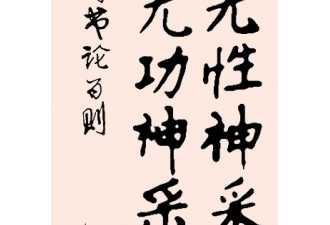 无性神采
无功神采
书论百则